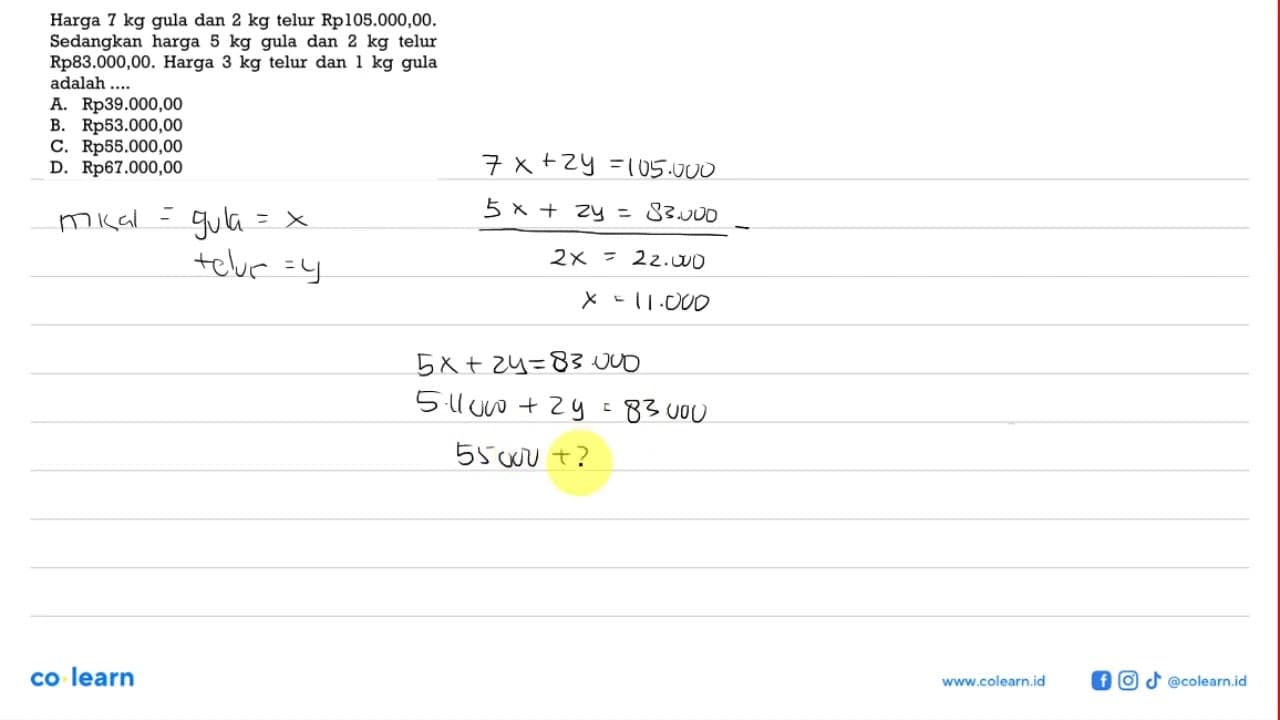 Harga 7 kg gula dan 2 kg telur Rp105.000,00.
Sedangkan harga 5 kg gula dan 2 kg telur
Rp83.000,00. Harga 3 kg telur dan 1 kg gula
adalah ....
A. Rp39.000,00
B. Rp53.000,00
C. Rp55.000,00
D. Rp67.000,00
misal = gula = x
telur = y
7x + 2y = 105.000
5x + 2y = 83.000 -
2x = 22.000
x = 11.000
5x + 2y = 83.000
5.11000 + 2y = 83000
55000 + ?
co learn
www.colearn.id
@colearn.id